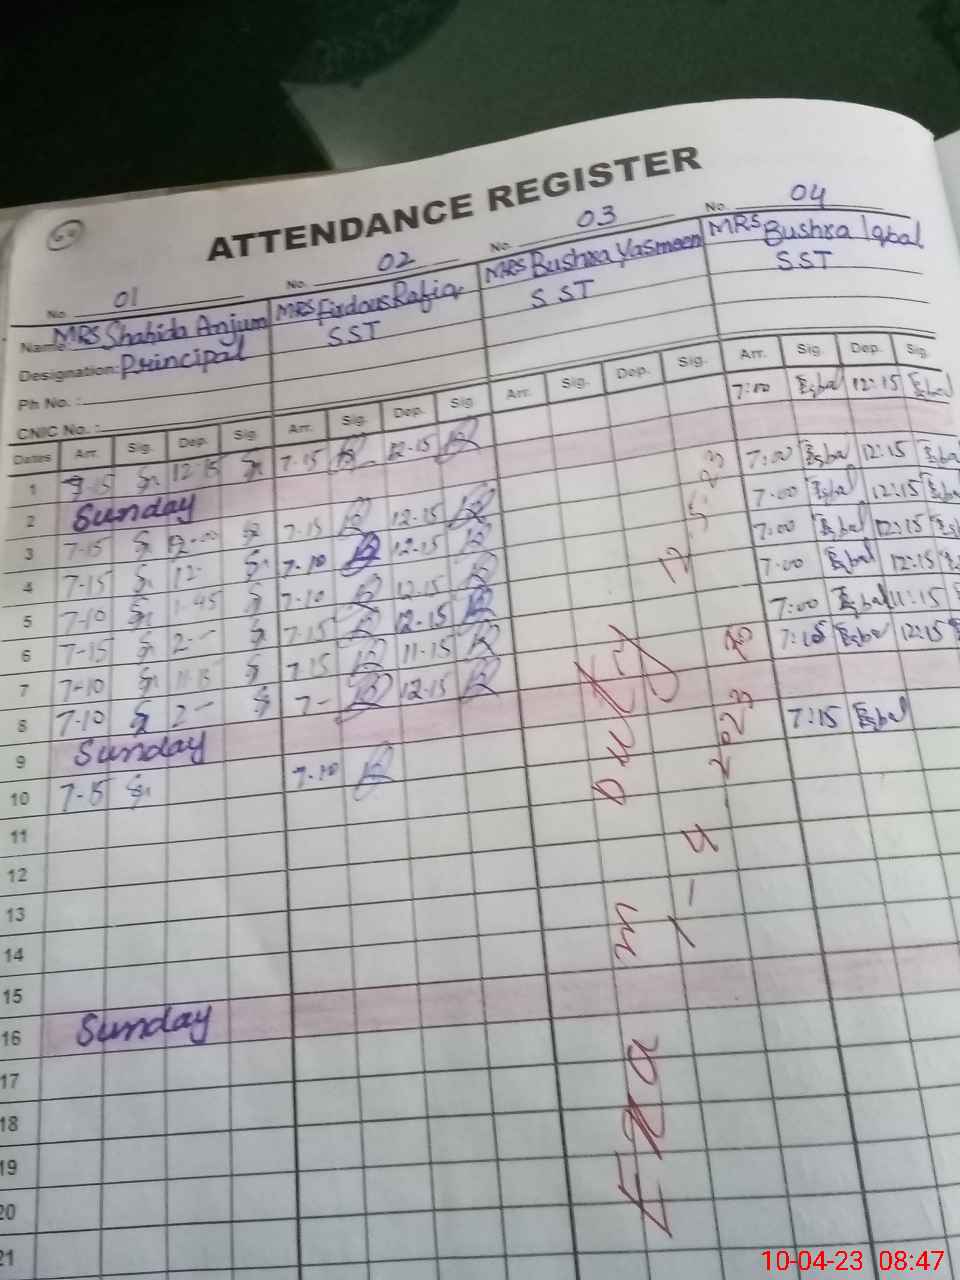 ATTENDANCE REGISTER
No. 01 No. 02 No. 03 No. 04
Name: MRS Shahida Anjum MRS Firdous Rafiq MRS Bushra Yasmeen MRS Bushra Iqbal
Designation: Principal SST SST SST
Ph No. :
CNIC No. :
Dates Arr. Sig. Dep. Sig. Arr. Sig. Dep. Sig. Arr. Sig. Dep. Sig. Arr. Sig. Dep. Sig.
1 7-15 12-15 7-15 12-15 7:00 Iqbal 12:15 Iqbal
2 Sunday
3 7-15 12-00 7-15 12-15 7:00 Iqbal 12:15 Iqbal
4 7-15 12- 7-10 12-15 7:00 Iqbal 12:15 Iqbal
5 7-10 1-45 7-10 12-15 7:00 Iqbal 12:15 Iqbal
6 7-15 2- 7-15 12-15 7:00 Iqbal 12:15
7 7-10 11-15 7-15 11-15 7:00 Iqbal 11:15 Iqbal
8 7-10 2- 7- 12-15 Iqbal 12:15
9 Sunday
10 7-15 7-10 7:15 Iqbal
11
12
13
14
15
16 Sunday
17
18
19
20
21
Exam Duty
1-4 2023
10-04-23 08:47